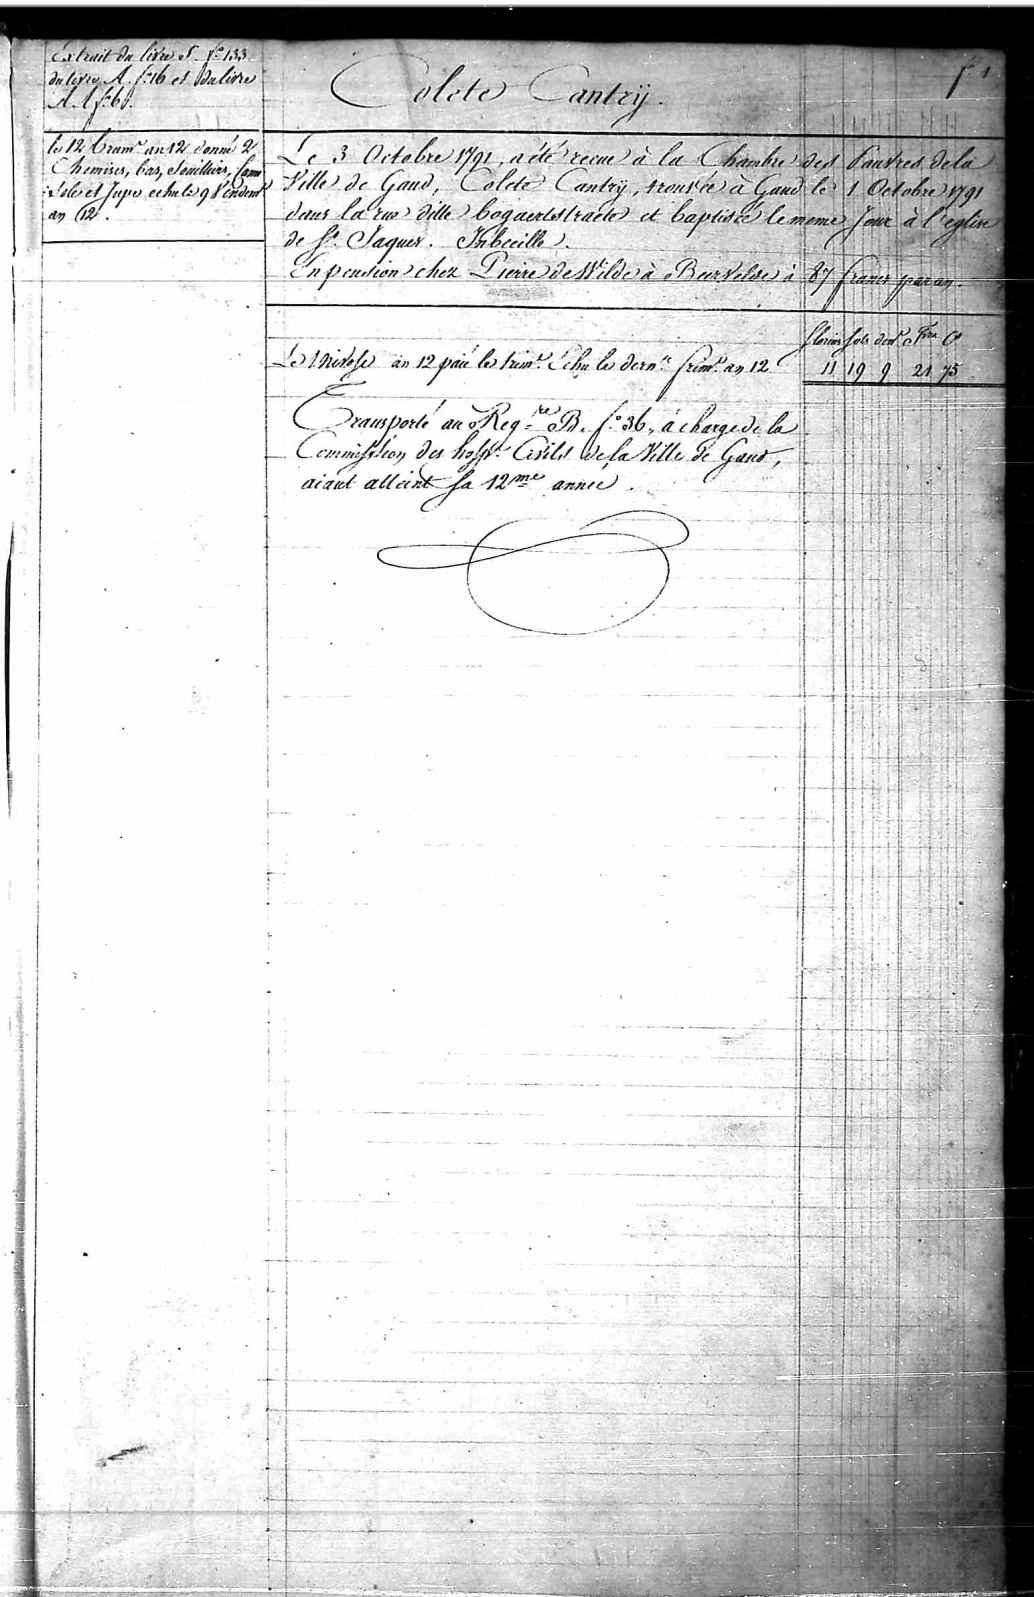 Extrait du livre S. f.º 133
du livre A. f.º 16 et du livre
A. A f.º 6.
Colete Cantrÿ.
f.º 1
le 12 bram.e an 12 donné 2
Chemises, bas, souilliers, Cami
sole et jupe echu le 9 Vendem
an 12.
Le 3 Octobre 1791, a été recue à la Chambre des Pauvres de la
Ville de Gand, Colete Cantrÿ, trouvée à Gand le 1 Octobre 1791
dans la rue ditte bogaertstraete et baptisée le meme Jour à l'eglise
de St. Jaques. Inbecille.
En pension chez Pierre de Wilde à Beirvelde à 87 francs par an.
florins sols den.rs Fra C.s
Le 1 Nivose an 12 paié le trim.e Echu le dern.r frim.e an 12 11 19 9 21 75
Transporté au Reg.re B. f.º 36, à charge de la
Commission des hosp.s Civils de la Ville de Gand,
aiant atteint sa 12me année.